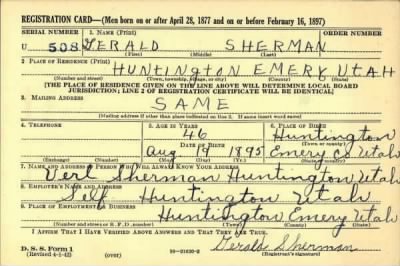 REGISTRATION CARD—(Men born on or after April 28, 1877 and on or before February 16, 1897)
SERIAL NUMBER 1. NAME (Print) ORDER NUMBER
U 508 GERALD SHERMAN
(First) (Middle) (Last)
2. PLACE OF RESIDENCE (Print)
HUNTINGTON EMERY UTAH
(Number and street) (Town, township, village, or city) (County) (State)
[THE PLACE OF RESIDENCE GIVEN ON THE LINE ABOVE WILL DETERMINE LOCAL BOARD
JURISDICTION; LINE 2 OF REGISTRATION CERTIFICATE WILL BE IDENTICAL]
3. MAILING ADDRESS
SAME
[Mailing address if other than place indicated on line 2. If same insert word same]
4. TELEPHONE 5. AGE IN YEARS 6. PLACE OF BIRTH
46 Huntington
DATE OF BIRTH (Town or county)
Aug 19 1895 Emery Co Utah
(Exchange) (Number) (Mo.) (Day) (Yr.) (State or country)
7. NAME AND ADDRESS OF PERSON WHO WILL ALWAYS KNOW YOUR ADDRESS
Verl Sherman Huntington Utah
8. EMPLOYER'S NAME AND ADDRESS
Self Huntington Utah
9. PLACE OF EMPLOYMENT OR BUSINESS
Huntington Emery Utah
(Number and street or R. F. D. number) (Town) (County) (State)
I AFFIRM THAT I HAVE VERIFIED ABOVE ANSWERS AND THAT THEY ARE TRUE.
D. S. S. Form 1
(Revised 4-1-42) (over) 16—21630-2
Gerald Sherman
(Registrant's signature)